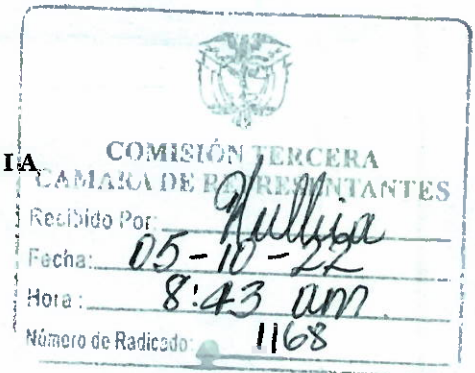 COMISIÓN TERCERA
I A
CAMARA DE REPRESENTANTES
Recibido Por:
Fecha: 05-10-22
Hora: 8:43 am
Número de Radicado: 1168